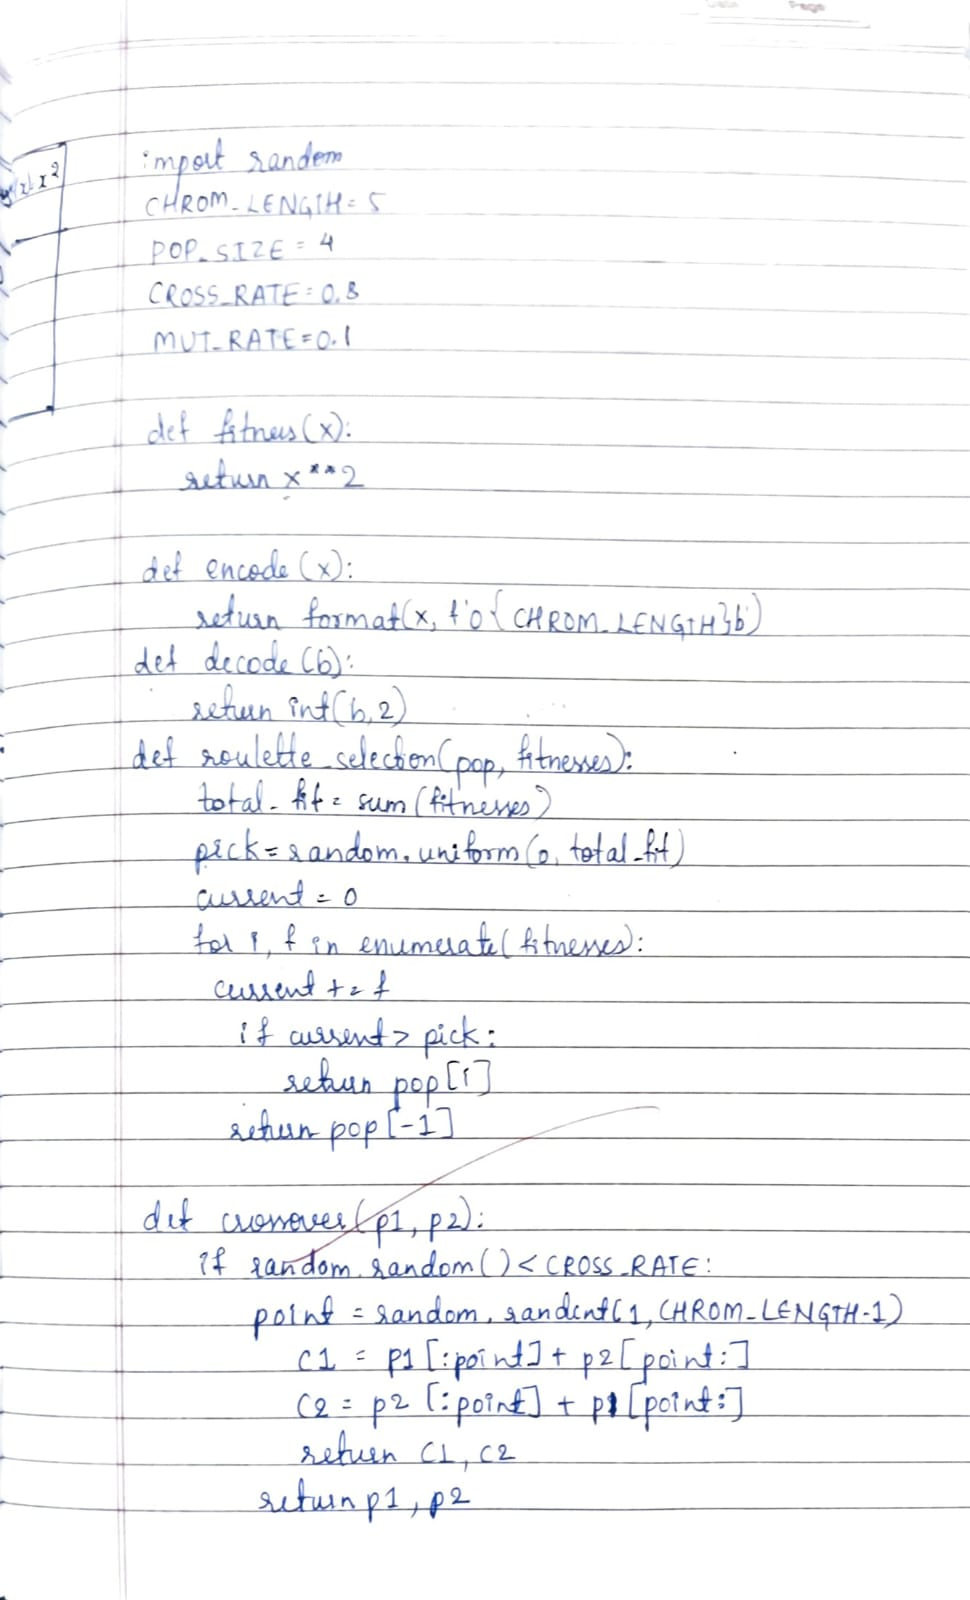 Date Page
x²
import random
CHROM_LENGTH = 5
POP_SIZE = 4
CROSS_RATE = 0.8
MUT_RATE = 0.1
def fitness(x):
return x**2
def encode(x):
return format(x, f'0{CHROM_LENGTH}b')
def decode(b):
return int(b,2)
def roulette_selection(pop, fitnesses):
total_fit = sum(fitnesses)
pick = random.uniform(0, total_fit)
current = 0
for i, f in enumerate(fitnesses):
current += f
if current > pick:
return pop[i]
return pop[-1]
def crossover(p1, p2):
if random.random() < CROSS_RATE:
point = random.randint(1, CHROM_LENGTH-1)
C1 = p1[:point] + p2[point:]
C2 = p2[:point] + p1[point:]
return C1, C2
return p1, p2